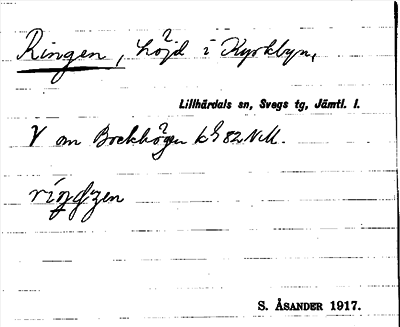 Ringen, höjd i Kyrkbyn,
Lillhärdals sn, Svegs tg, Jämtl. l.
V om Bockhögen 82 N.M.
S. ÅSANDER 1917.